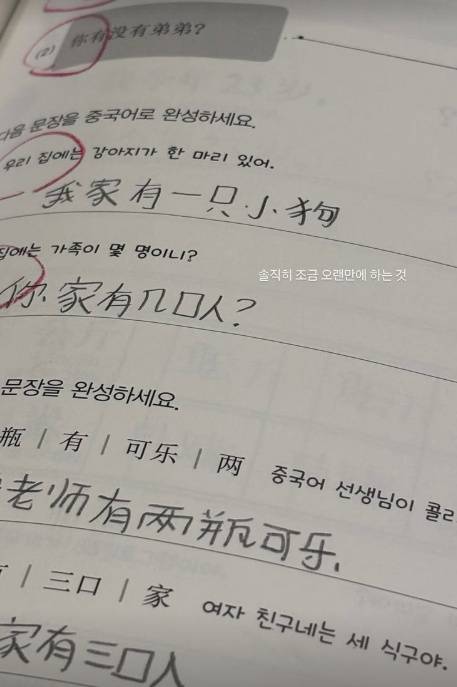 (2) 你有没有弟弟?
다음 문장을 중국어로 완성하세요.
우리 집에는 강아지가 한 마리 있어.
我家有一只小狗
집에는 가족이 몇 명이니?
솔직히 조금 오랜만에 하는 것
你家有几口人?
문장을 완성하세요.
瓶 | 有 | 可乐 | 两 중국어 선생님이 콜라
老师有两瓶可乐.
| 三口 | 家 여자 친구네는 세 식구야.
家有三口人